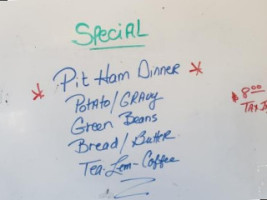 SPECIAL
* Pit Ham Dinner *
Potato/GRAVY
Green Beans
Bread/Butter
Tea-Lem-Coffee
8.00